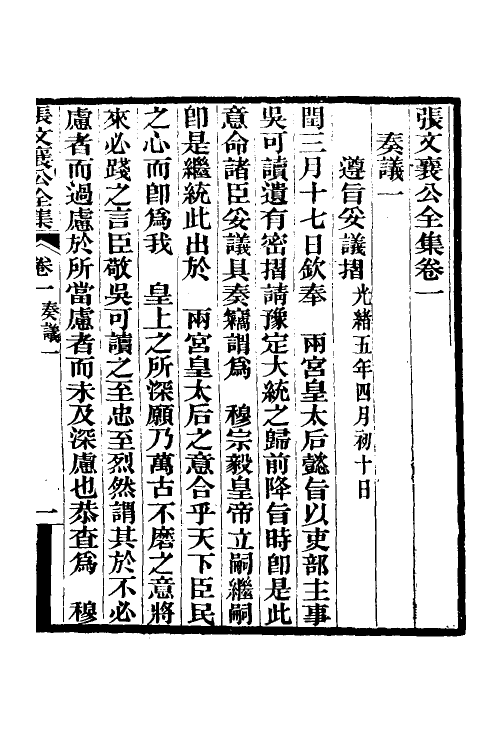 張文襄公全集卷一
奏議一
遵旨妥議摺光緒五年四月初十日
閏三月十七日欽奉　兩宮皇太后懿旨以吏部主事
吳可讀遺有密摺請豫定大統之歸前降旨時卽是此
意命諸臣妥議具奏竊謂爲　穆宗毅皇帝立嗣繼嗣
卽是繼統此出於　兩宮皇太后之意合乎天下臣民
之心而卽爲我　皇上之所深願乃萬古不磨之意將
來必踐之言臣敬吳可讀之至忠至烈然謂其於不必
慮者而過慮於所當慮者而未及深慮也恭查爲　穆
張文襄公全集　卷一　奏議一　一